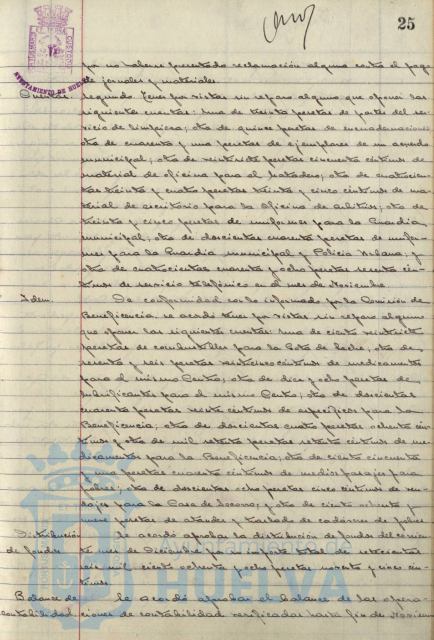 25
AYUNTAMIENTO DE HUELVA
por no haberse presentado reclamación alguna contra el pago
de jornales y materiales
Cuentas. Segundo. Tener por vistas sin reparo alguno que oponer las
siguientes cuentas: Una de treinta pesetas de partes del ser-
vicio de limpieza; otra de quince pesetas de encuadernaciones
otra de cuarenta y una pesetas de ejemplares de un acuerdo
municipal; otra de veintiseis pesetas cincuenta céntimos de
material de oficina para el Matadero; otra de cuatrocien-
tas treinta y cuatro pesetas treinta y cinco céntimos de ma-
terial de escritorio para la Oficina de arbitrios; otra de
treinta y cinco pesetas de uniformes para la Guardia
municipal; otra de doscientas cuarenta pesetas de unifor-
mes para la Guardia municipal y Policia Urbana; y
otra de cuatrocientas cuarenta y ocho pesetas sesenta cén-
timos de servicio telefónico en el mes de Noviembre
Idem. De conformidad con lo informado por la Comisión de
Beneficencia, se acordó tener por vistas sin reparo alguno
que oponer las siguientes cuentas: Una de ciento veintisiete
pesetas de combustibles para la Gota de leche; otra de
sesenta y seis pesetas veinticinco céntimos de medicamentos
para el mismo Centro; otra de diez y ocho pesetas de
lubrificantes para el mismo Centro; otra de doscientas
cuarenta pesetas veinte céntimos de especificos para la
Beneficencia; otra de doscientas cuatro pesetas ochenta cén-
timos y otra de mil setenta pesetas setenta céntimos de me-
dicamentos para la Beneficencia; otra de ciento cincuenta
y una pesetas cuarenta céntimos de medios pasajes para
pobres; otra de doscientas ocho pesetas cinco céntimos de ven-
dajes para la Casa de Socorro; y otra de ciento ochenta y
nueve pesetas de ataúdes y traslado de cadáveres de pobres
Distribución Se acordó aprobar la distribución de fondos del corrien-
de fondos te mes de Diciembre por importe total de
seis mil ciento ochenta y ocho pesetas noventa y cinco cén-
timos.
Balance de Se acordó aprobar el balance de las opera-
contabilidad ciones de contabilidad verificadas hasta fin de Noviem
Ayuntamiento de
HUELVA